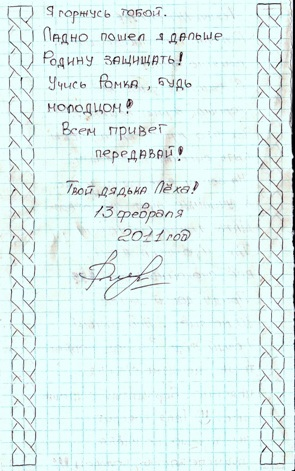 Я горжусь тобой.
Ладно пошел я дальше
Родину защищать!
Учись Ромка, будь
молодцом!
Всем привет
передавай!
Твой дядька Лёха!
13 февраля
2011 год